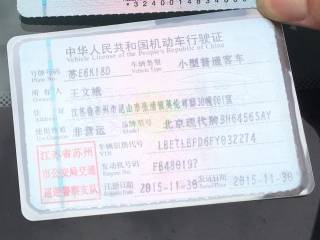 *3240014834003*
中华人民共和国机动车行驶证
Vehicle License of the People's Republic of China
号牌号码 苏E6K18D 车辆类型 小型普通客车
Plate No. Vehicle Type
所有人 王文娥
Owner
住址 江苏省苏州市昆山市张浦镇
Address
使用性质 非营运 品牌型号 北京现代牌BH6456SAY
Use Character Model
江苏省苏州
市公安局交通
巡逻警察支队
车辆识别代号 LBETLBFD6FY032274
VIN
发动机号码 FB480192
Engine No.
注册日期 2015-11-30 发证日期 2015-11-30
Register Date Issue Date